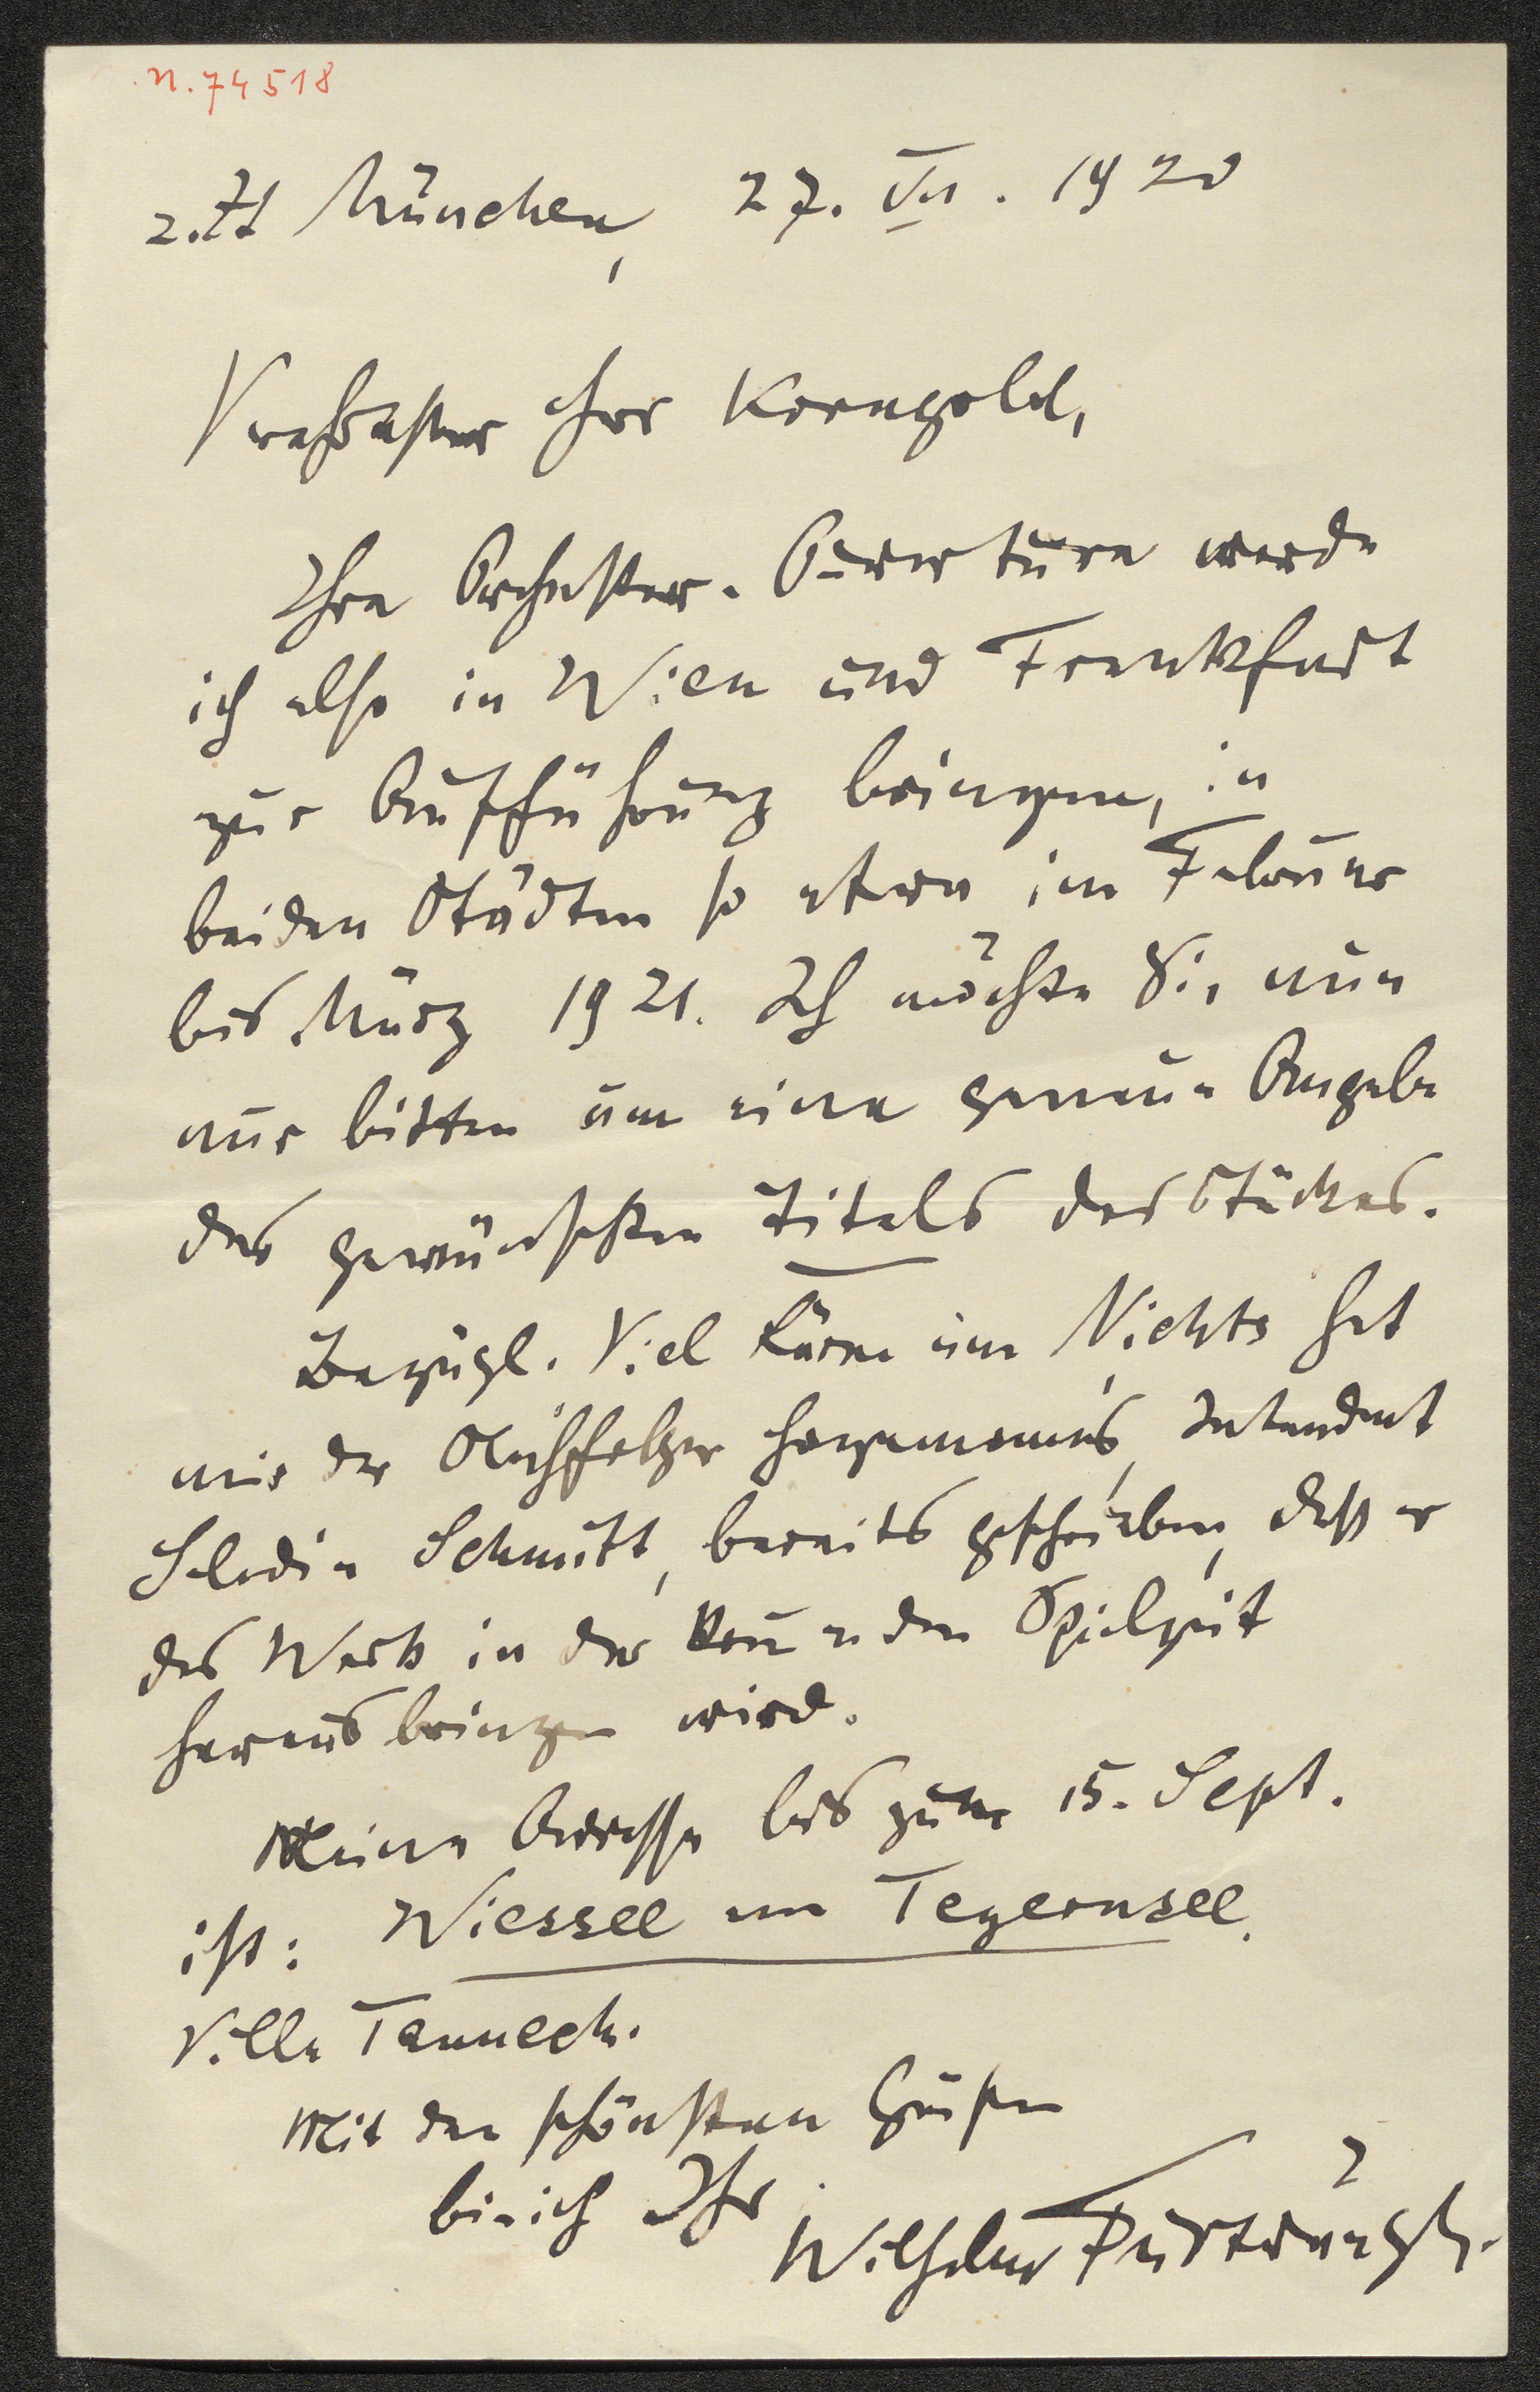 N. 74518
z. Zt München, 27. VII. 1920
Verehrtester Herr Korngold,
Ihre Orchester-Ouverture werde
ich also in Wien und Frankfurt
zur Aufführung bringen, in
beiden Städten so etwa im Februar
bis März 1921. Ich möchte Sie nun
nur bitten um eine genaue Angabe
des gewünschten Titels des Stückes.
Bezügl. Viel Lärm um Nichts hat
mir der Nachfolger Hagemanns, Intendant
Saladin Schmitt, bereits geschrieben, dass er
das Werk in der kommenden Spielzeit
herausbringen wird.
Meine Adresse bis zum 15. Sept.
ist: Wiessee am Tegernsee.
Villa Tanneck.
Mit den schönsten Grüßen
bin ich Ihr
Wilhelm Furtwängler.